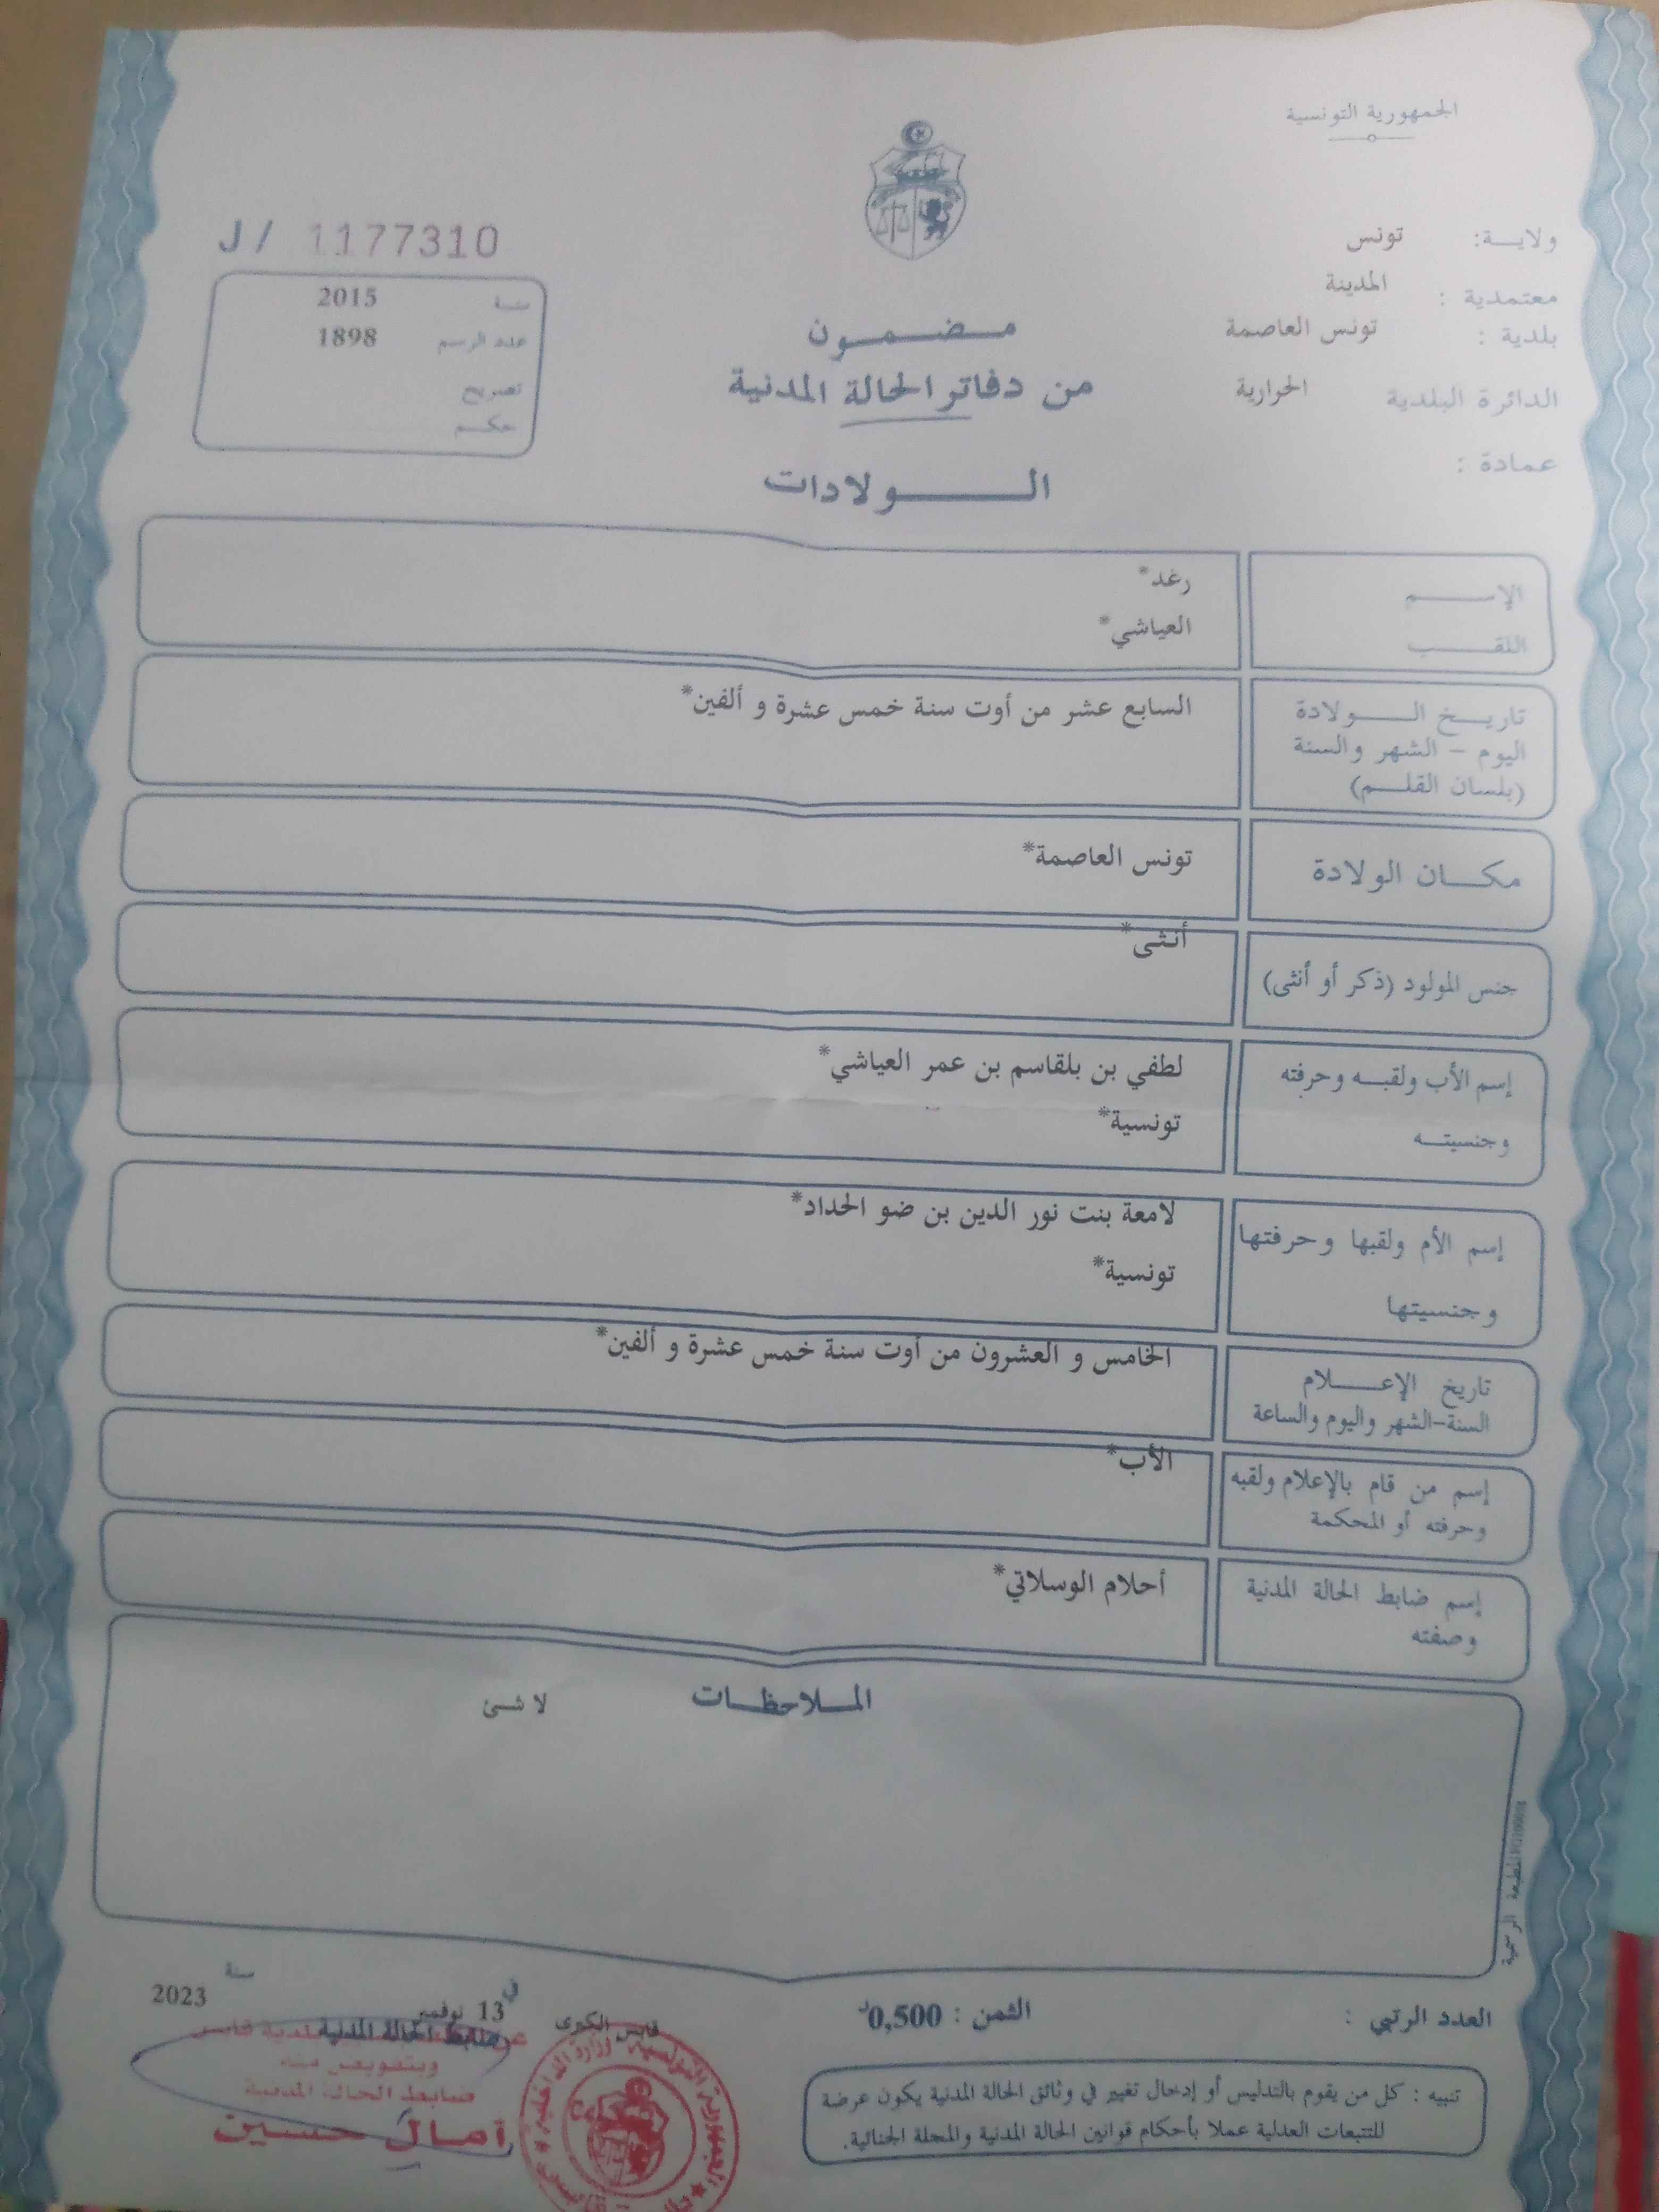 الجمهورية التونسية
ولاية: تونس
معتمدية : المدينة
بلدية : تونس العاصمة
الدائرة البلدية الحرارية
عمادة :
مضمون
من دفاتر الحالة المدنية
الولادات
J/ 1177310
سنة 2015
عدد الرسم 1898
تصريح
حكم
الإسم رغد*
اللقب العياشي*
تاريخ الولادة السابع عشر من أوت سنة خمس عشرة و ألفين*
اليوم - الشهر والسنة
(بلسان القلم)
مكان الولادة تونس العاصمة*
جنس المولود (ذكر أو أنثى) أنثى*
إسم الأب ولقبه وحرفته لطفي بن بلقاسم بن عمر العياشي*
وجنسيته تونسية*
إسم الأم ولقبها وحرفتها لامعة بنت نور الدين بن ضو الحداد*
وجنسيتها تونسية*
تاريخ الإعلام الخامس و العشرون من أوت سنة خمس عشرة و ألفين*
السنة-الشهر واليوم والساعة
إسم من قام بالإعلام ولقبه الأب*
وحرفته أو المحكمة
إسم ضابط الحالة المدنية أحلام الوسلاتي*
وصفته
الملاحظات لا شئ
المطبعة الرسمية
العدد الرتبي : الثمن : 0,500د
قابس الكبرى في 13 نوفمبر سنة 2023
ضابط الحالة المدنية
وبتفويض منه
ضابط الحالة المدنية
آمال حسين
تنبيه : كل من يقوم بالتدليس أو إدخال تغيير في وثائق الحالة المدنية يكون عرضة
للتتبعات العدلية عملا بأحكام قوانين الحالة المدنية والمجلة الجنائية.